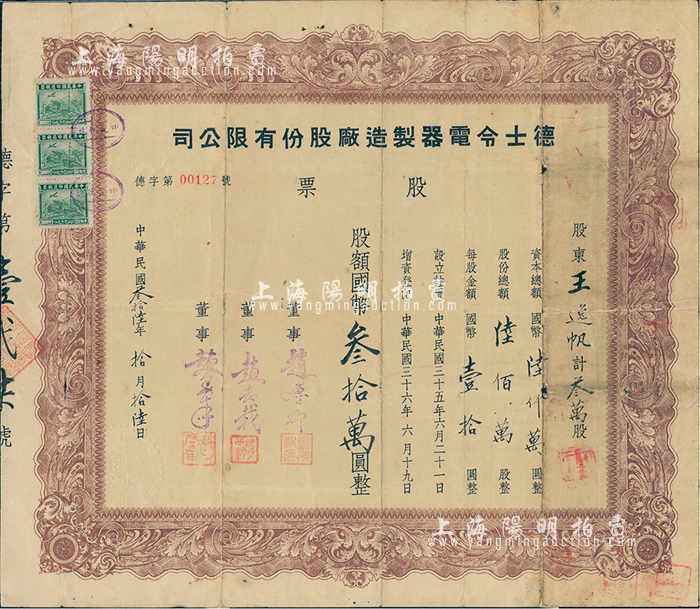 上海陽明拍賣
www.yangmingauction.com
司公限有份股廠造製器電令士德
票 股
德字第 00127 號
股東 王逸帆 計 叁萬股
資本總額 國幣 陸仟萬 圓整
股份總額 陸佰萬 股整
每股金額 國幣 壹拾 圓整
設立 中華民國三十五年六月二十一日
增資登 中華民國三十六年六月十九日
股額國幣 叁拾萬 圓整
董事
董事
董事
中華民國叁拾陸年拾月拾陸日
德字第
號
上海陽明拍賣
www.yangmingauction.com
上海陽明拍賣
www.yangmingauction.com